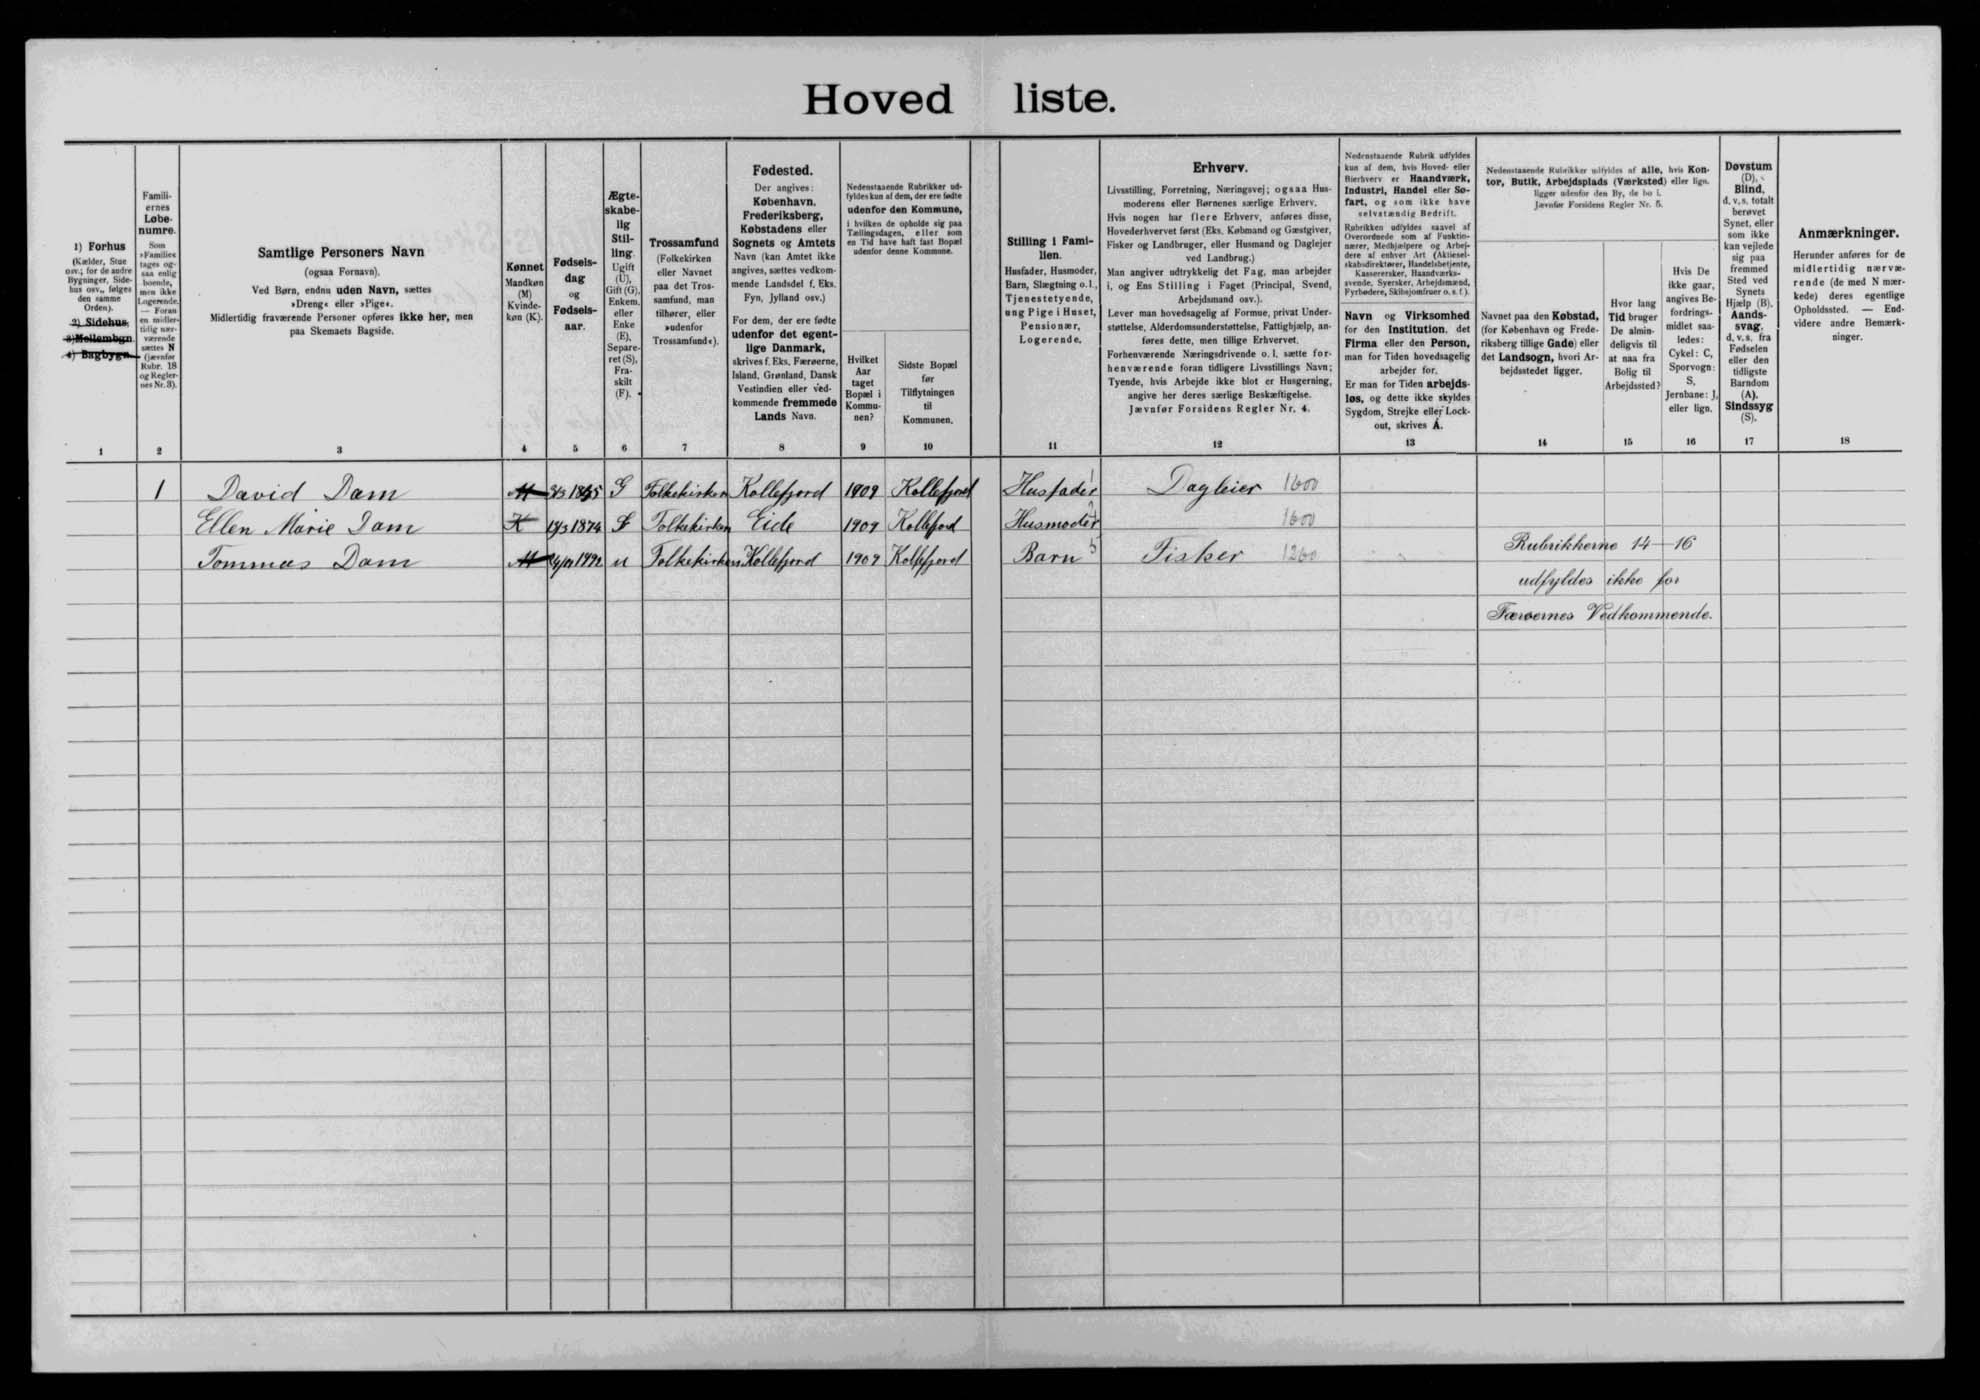 Hoved liste.
1) Forhus
(Kælder, Stue
osv.; for de andre
Bygninger, Side-
hus osv., følges
den samme
Orden).
2) Sidehus,
3) Mellembgn
4) Bagbygn.
1
Famili-
ernes
Løbe-
numre.
Som
»Familie«
tages og-
saa enlig
boende,
men ikke
Logerende.
— Foran
en midler-
tidig nær-
værende
sættes N
(jævnfør
Rubr. 18
og Regler-
nes Nr. 3).
2
Samtlige Personers Navn
(ogsaa Fornavn).
Ved Børn, endnu uden Navn, sættes
»Dreng« eller »Pige«.
Midlertidig fraværende Personer opføres ikke her, men
paa Skemaets Bagside.
3
Kønnet
Mandkøn
(M)
Kvinde-
køn (K).
4
Fødsels-
dag
og
Fødsels-
aar.
5
Ægte-
skabe-
lig
Stil-
ling.
Ugift
(U),
Gift (G),
Enkem.
eller
Enke
(E),
Separe-
ret (S),
Fra-
skilt
(F).
6
Trossamfund
(Folkekirken
eller Navnet
paa det Tros-
samfund, man
tilhører, eller
»udenfor
Trossamfund«).
7
Fødested.
Der angives:
København,
Frederiksberg,
Købstadens eller
Sognets og Amtets
Navn (kan Amtet ikke
angives, sættes vedkom-
mende Landsdel f. Eks.
Fyn, Jylland osv.)
For dem, der ere fødte
udenfor det egent-
lige Danmark,
skrives f. Eks. Færøerne,
Island, Grønland, Dansk
Vestindien eller ved-
kommende fremmede
Lands Navn.
8
Nedenstaaende Rubrikker ud-
fyldes kun af dem, der ere fødte
udenfor den Kommune,
i hvilken de opholde sig paa
Tællingsdagen, eller som
en Tid have haft fast Bopæl
udenfor denne Kommune.
Hvilket
Aar
taget
Bopæl i
Kommu-
nen?
9
Sidste Bopæl
før
Tilflytningen
til
Kommunen.
10
Stilling i Fami-
lien.
Husfader, Husmoder,
Barn, Slægtning o. l.
Tjenestetyende,
ung Pige i Huset,
Pensionær,
Logerende.
11
Erhverv.
Livsstilling, Forretning, Næringsvej; ogsaa Hus-
moderens eller Børnenes særlige Erhverv.
Hvis nogen har flere Erhverv, anføres disse,
Hovederhvervet først (Eks. Købmand og Gæstgiver,
Fisker og Landbruger, eller Husmand og Daglejer
ved Landbrug.)
Man angiver udtrykkelig det Fag, man arbejder
i, og Ens Stilling i Faget (Principal, Svend,
Arbejdsmand osv.).
Lever man hovedsagelig af Formue, privat Under-
støttelse, Alderdomsunderstøttelse, Fattighjælp, an-
føres dette, men tillige Erhvervet.
Forhenværende Næringsdrivende o. l. sætte for-
henværende foran tidligere Livsstillings Navn;
Tyende, hvis Arbejde ikke blot er Husgerning,
angive her deres særlige Beskæftigelse.
Jævnfør Forsidens Regler Nr. 4.
12
Nedenstaaende Rubrik udfyldes
kun af dem, hvis Hoved- eller
Bierhverv er Haandværk,
Industri, Handel eller Sø-
fart, og som ikke have
selvstændig Bedrift.
Rubrikken udfyldes saavel af
Overordnede som af Funktio-
nærer, Medhjælpere og Arbej-
dere af enhver Art (Aktiesel-
skabsdirektører, Handelsbetjente,
Kasserersker, Haandværks-
svende, Syersker, Arbejdsmænd,
Fyrbødere, Skibsjomfruer o. s. f.).
Navn og Virksomhed
for den Institution, det
Firma eller den Person,
man for Tiden hovedsagelig
arbejder for.
Er man for Tiden arbejds-
løs, og dette ikke skyldes
Sygdom, Strejke eller Lock-
out, skrives A.
13
Nedenstaaende Rubrikker udfyldes af alle, hvis Kon-
tor, Butik, Arbejdsplads (Værksted) eller lign.
ligger udenfor den By, de bo i.
Jævnfør Forsidens Regler Nr. 5.
Navnet paa den Købstad,
(for København og Frede-
riksberg tillige Gade) eller
det Landsogn, hvori Ar-
bejdsstedet ligger.
14
Hvor lang
Tid bruger
De almin-
deligvis til
at naa fra
Bolig til
Arbejdssted?
15
Hvis De
ikke gaar,
angives Be-
fordrings-
midlet saa-
ledes:
Cykel: C,
Sporvogn:
S,
Jernbane: J,
eller lign.
16
Døvstum
(D),
Blind,
d. v. s. totalt
berøvet
Synet, eller
som ikke
kan vejlede
sig paa
fremmed
Sted ved
Synets
Hjælp (B),
Aands-
svag,
d. v. s. fra
Fødselen
eller den
tidligste
Barndom
(A),
Sindssyg
(S).
17
Anmærkninger.
Herunder anføres for de
midlertidig nærvæ-
rende (de med N mær-
kede) deres egentlige
Opholdssted. — End-
videre andre Bemærk-
ninger.
18
1 David Dam M G Folkekirken Kollefjord 1909 Kollefjord Husfader 1 Dagleier 1600
Ellen Marie Dam K 19/3 1874 G Folkekirken Eide 1909 Kollefjord Husmoder 1600
Tommas Dam M u Folkekirken Kollefjord 1909 Kollefjord Barn 5 Fisker 1200
Rubrikkerne 14–16
udfyldes ikke for
Færøernes Vedkommende.